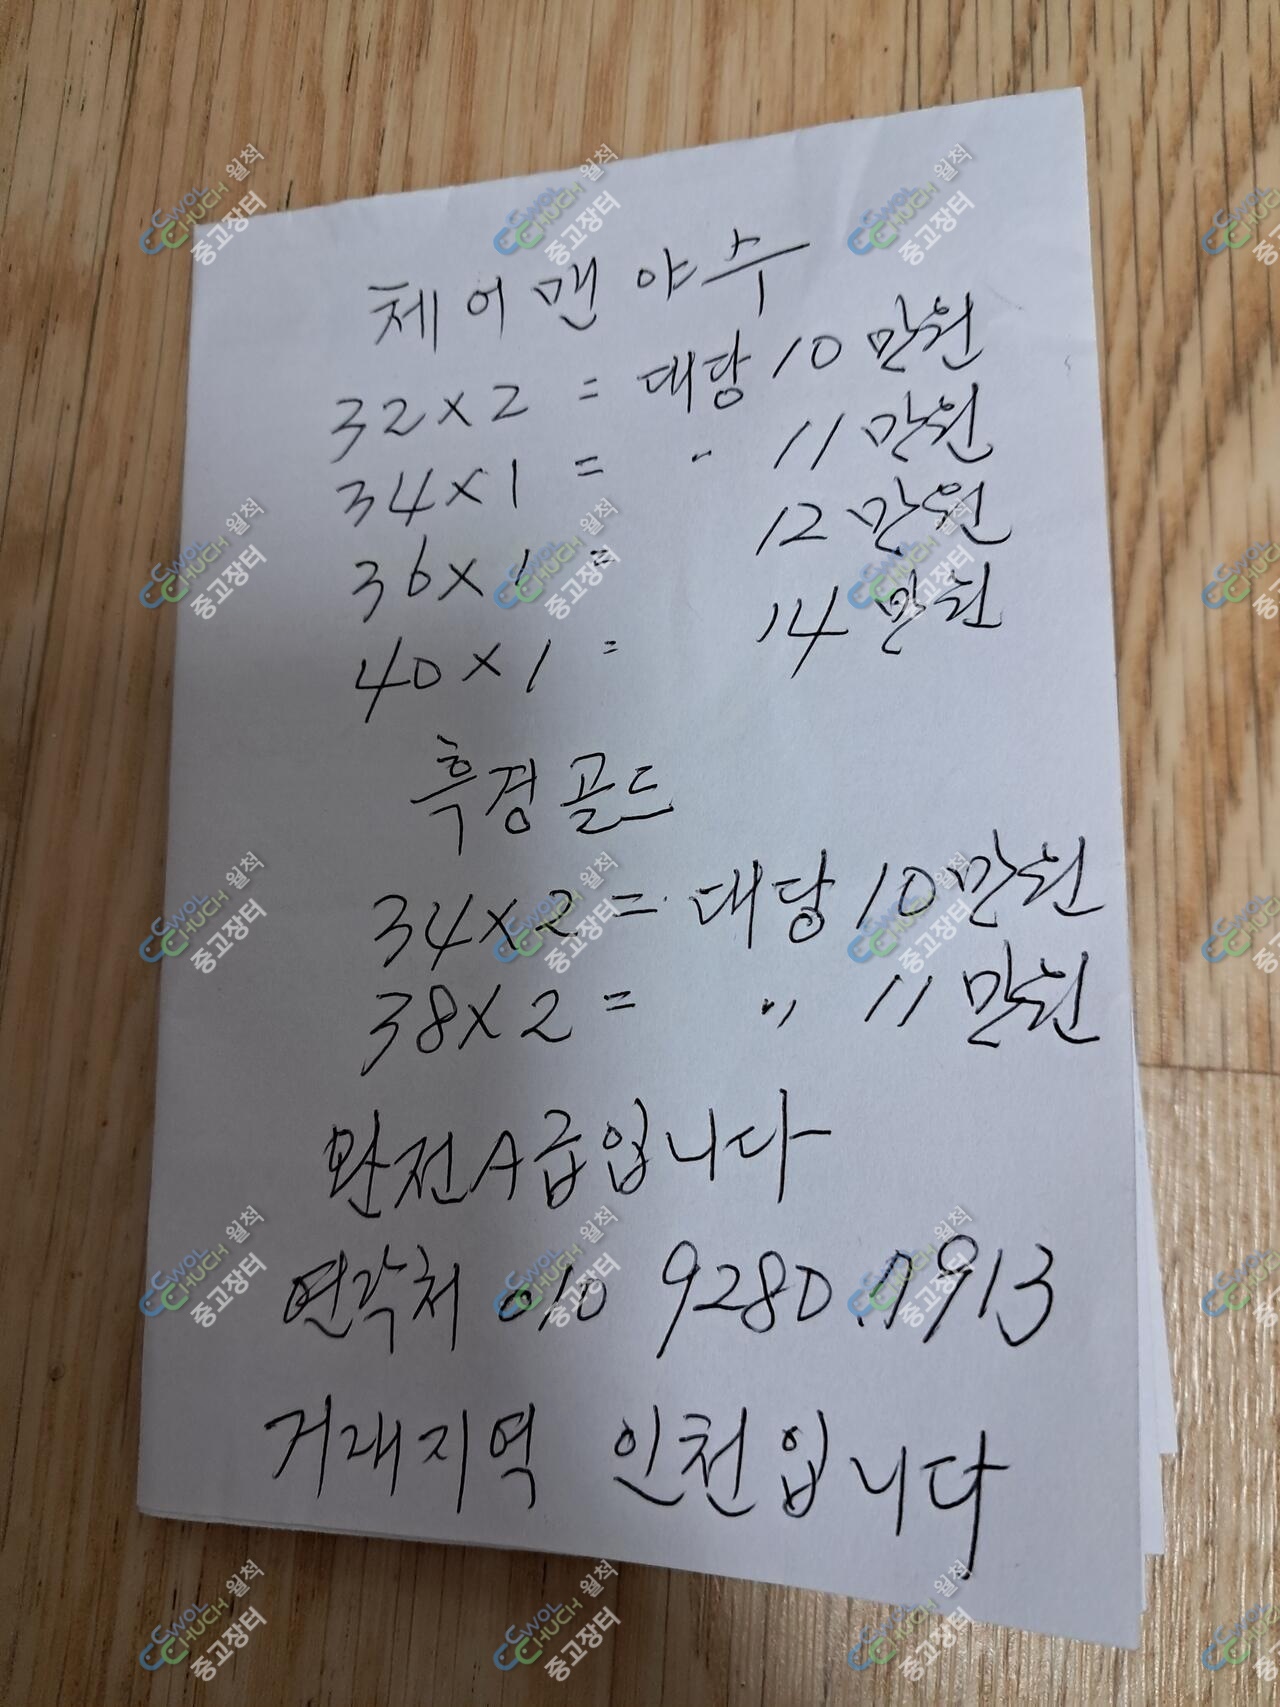 체어맨 야수
32×2 = 대당 10만원
34×1 = 〃 11만원
36×1 = 12만원
40×1 = 14만원
흑경골드
34×2 = 대당 10만원
38×2 = 〃 11만원
완전A급입니다
연락처 010 9280.1913
거래지역 인천입니다
CWOL CHUCH 월척 중고장터